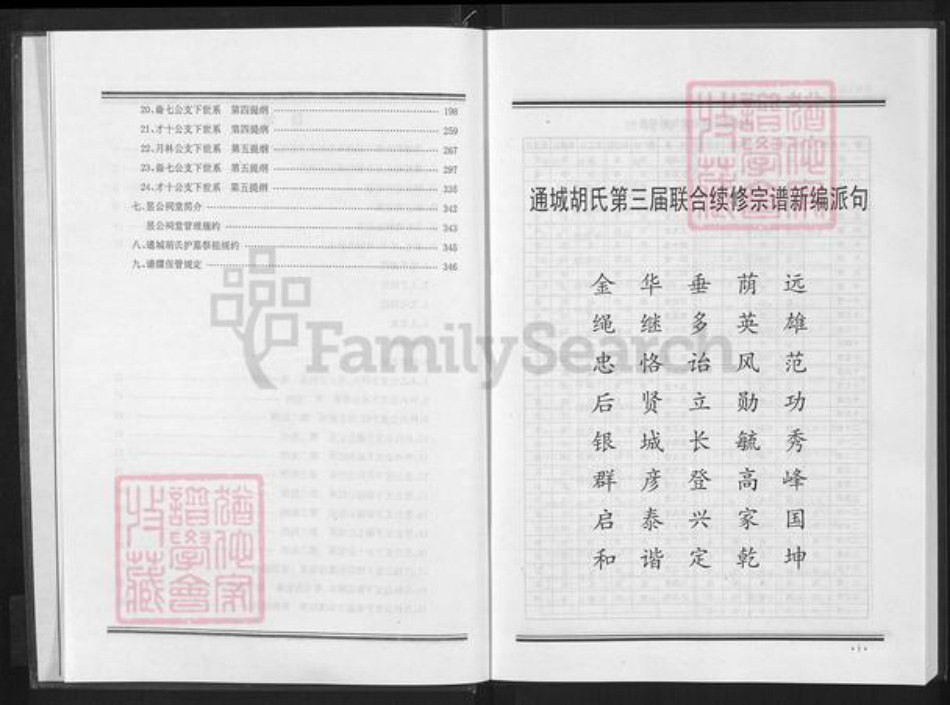 20、备七公支下世系 第四提纲 198
21、才十公支下世系 第四提纲 259
22、月林公支下世系 第五提纲 267
23、备七公支下世系 第五提纲 297
24、才十公支下世系 第五提纲 338
七、昱公祠堂简介 342
昱公祠堂管理规约 343
八、通城胡氏护墓祭祖规约 345
九、谱牒保管规定 346
FamilySearch
通城胡氏第三届联合续修宗谱新编派句
金 华 垂 荫 远
绳 继 多 英 雄
忠 恪 诒 风 范
后 贤 立 勋 功
银 城 长 毓 秀
群 彦 登 高 峰
启 泰 兴 家 国
和 谐 定 乾 坤
·1·